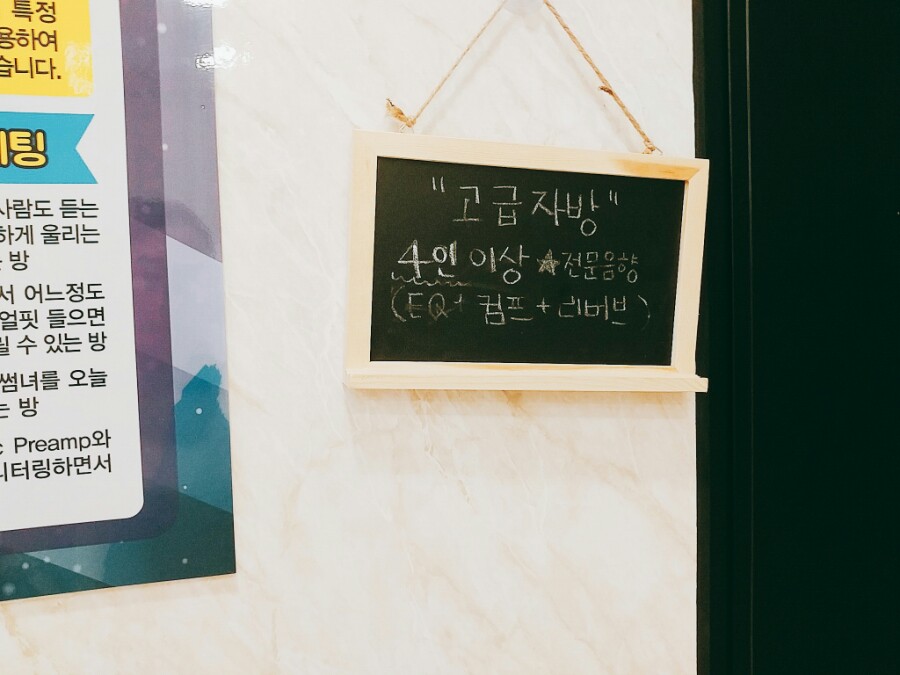 특정
용하여
습니다.
팅
사람도 듣는
하게 울리는
방
서 어느정도
얼핏 들으면
릴 수 있는 방
썸녀를 오늘
는 방
c Preamp와
니터링하면서
"고급자방"
4인 이상 ★전문음향
(EQ+ 컴프+리버브)